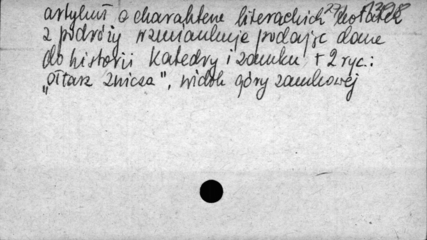 artykuł o charakterze literackich
z podróży wzmiankuje podając dane
do historii Katedry i zamku + 2 ryc.:
"Ołtarz Znicza", widok góry zamkowej